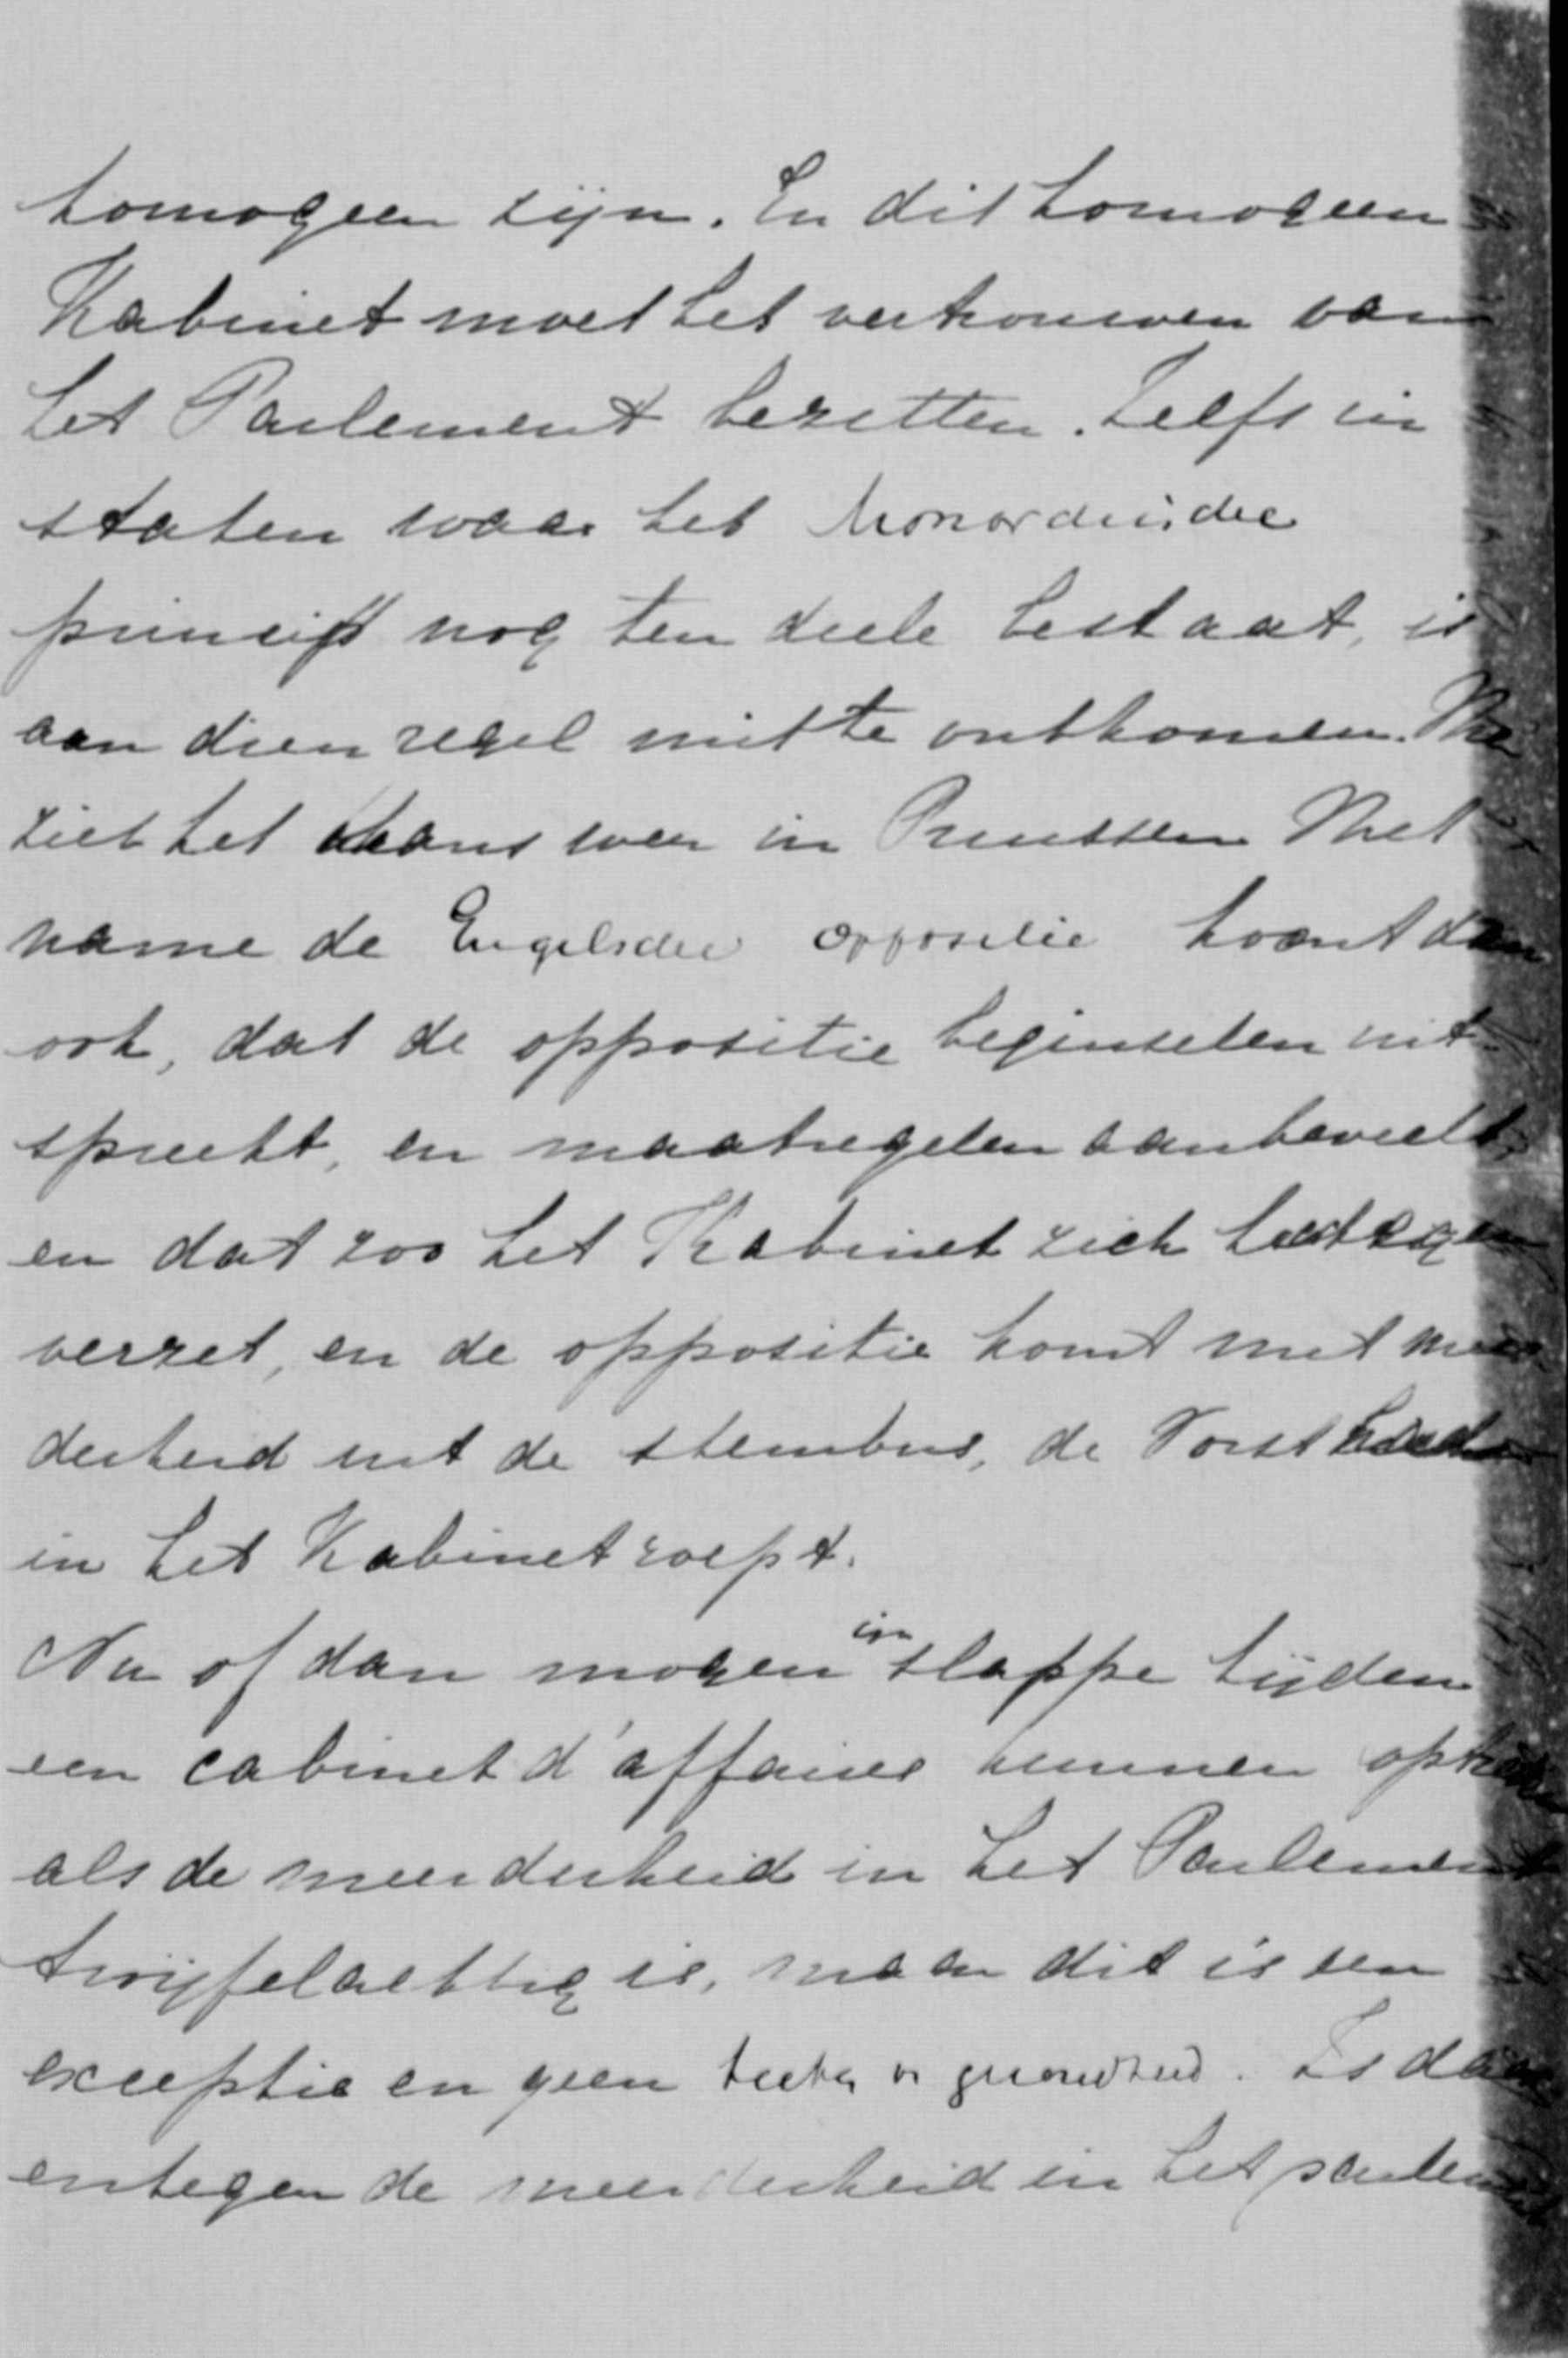 homogeen zijn. En dit homogeen
Kabinet moet het vertrouwen van
het Parlement bezitten. Zelfs in
staten waar het Monarchische
principe nog ten deele bestaat, is
aan dien regel niet te ontkomen. Men
ziet het thans weer in Pruissen Met
name de Engelsche oppositie toont dan
ook, dat de oppositie beginselen uit-
spreekt, en maatregelen aanbeveelt,
en dat zoo het Kabinet zich hiertegen
verzet, en de oppositie komt met meer-
derheid uit de stembus, de Vorst
in het Kabinet roept.
Nu of dan mogen in slappe tijden
een cabinet d'affaires kunnen optreden
als de meerderheid in het Parlement
twijfelachtig is, maar dit is een
exceptie en geen teeken v. gezondheid. Is daar-
entegen de meerderheid in het parlement